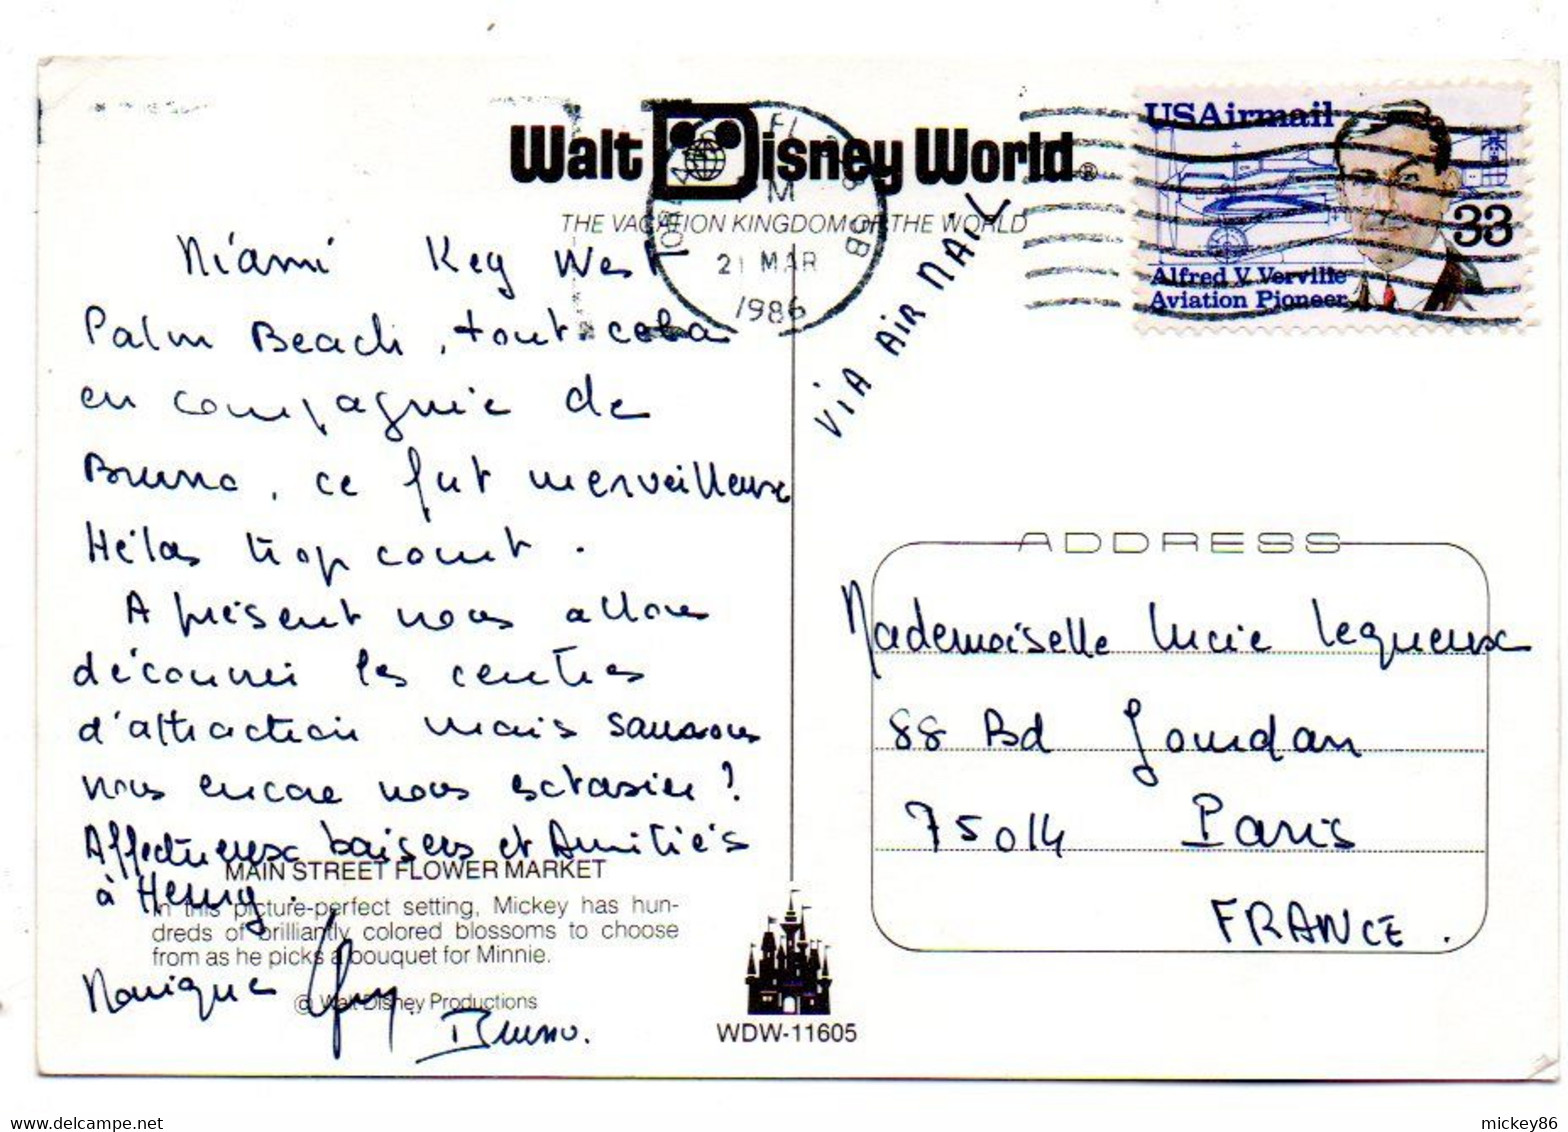 Walt Disney World®
THE VACATION KINGDOM OF THE WORLD
FL
PM
21 MAR
1986
USAirmail
33
Alfred V. Verville
Aviation Pioneer
VIA AIR MAIL
Miami Key West
Palm Beach, tout cela
en compagnie de
Bruno, ce fut merveilleux
Hélas trop court.
A présent nous allons
découvrir les centres
d'attraction mais saurons
nous encore nous extasier ?
Affectueux baisers et Amitiés
à Henry.
Monique
Bruno.
MAIN STREET FLOWER MARKET
In this picture-perfect setting, Mickey has hun-
dreds of brilliantly colored blossoms to choose
from as he picks a bouquet for Minnie.
© Walt Disney Productions
WDW-11605
ADDRESS
Mademoiselle Lucie Lequeux
88 Bd Jourdan
75014 Paris
FRANCE.
mickey86